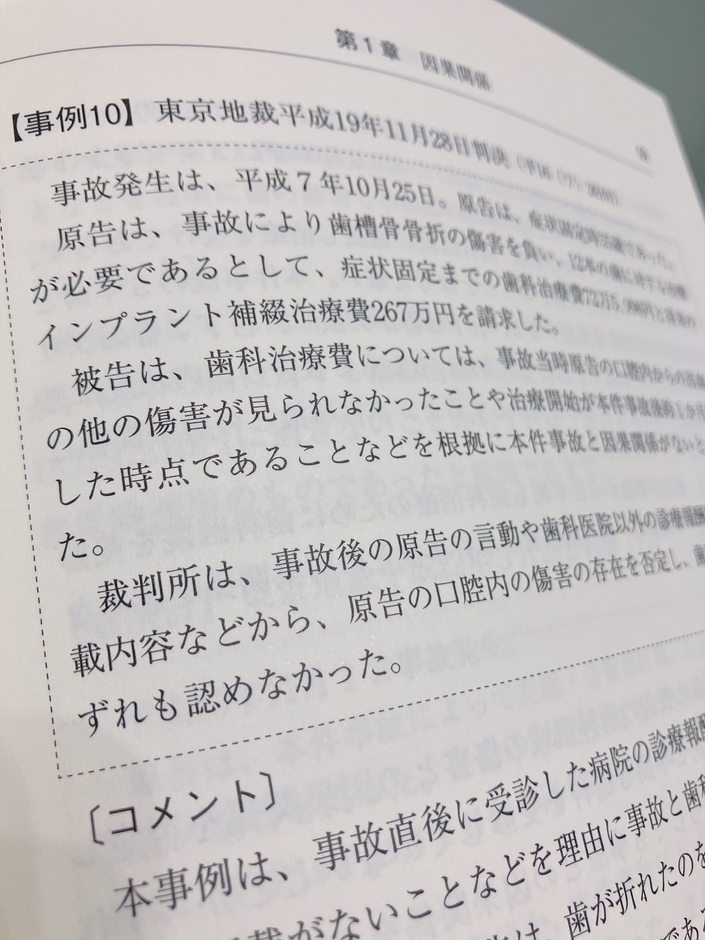 第１章　因果関係
【事例10】 東京地裁平成19年11月28日判決
事故発生は、平成７年10月25日。原告は、症状固定時25歳であった。
原告は、事故により歯槽骨骨折の傷害を負い、12本の歯に対する治療
が必要であるとして、症状固定までの歯科治療費72万5,990円と将来の
インプラント補綴治療費267万円を請求した。
被告は、歯科治療費については、事故当時原告の口腔内からの出血
の他の傷害が見られなかったことや治療開始が本件事故後約１か月
した時点であることなどを根拠に本件事故と因果関係がないと
た。
裁判所は、事故後の原告の言動や歯科医院以外の診療報酬
載内容などから、原告の口腔内の傷害の存在を否定し、歯
ずれも認めなかった。
〔コメント〕
本事例は、事故直後に受診した病院の診療報酬
載がないことなどを理由に事故と歯科
は、歯が折れたのを